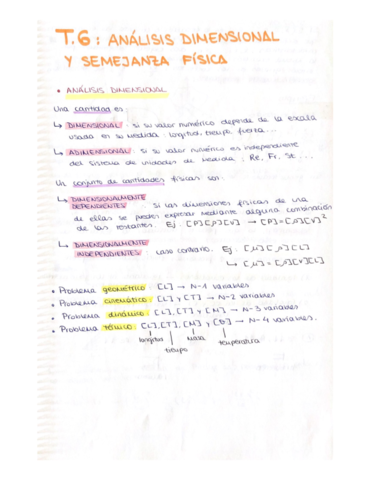 T.6: ANÁLISIS DIMENSIONAL
Y SEMEJANZA FÍSICA
• ANÁLISIS DIMENSIONAL
Una cantidad es:
↳ DIMENSIONAL: si su valor numérico depende de la escala
usada en su medida: longitud, tiempo, fuerza...
↳ ADIMENSIONAL: si su valor numérico es independiente
del sistema de unidades de medida: Re, Fr, St...
Un conjunto de cantidades físicas son:
↳ DIMENSIONALMENTE
DEPENDIENTES: Si las dimensiones físicas de una
de ellas se pueden expresar mediante alguna combinación
de las restantes. Ej. [P][ρ][V] → [P]=[ρ][V]²
↳ DIMENSIONALMENTE
INDEPENDIENTES: caso contrario. Ej. [μ][ρ][L]
↳ [μ]=[ρ][V][L]
• Problema geométrico: [L] → N-1 variables
• Problema cinemático: [L] y [T] → N-2 variables
• Problema dinámico: [L], [T] y [M] → N-3 variables
• Problema térmico: [L], [T], [M] y [Θ] → N-4 variables.
longitud masa temperatura
tiempo